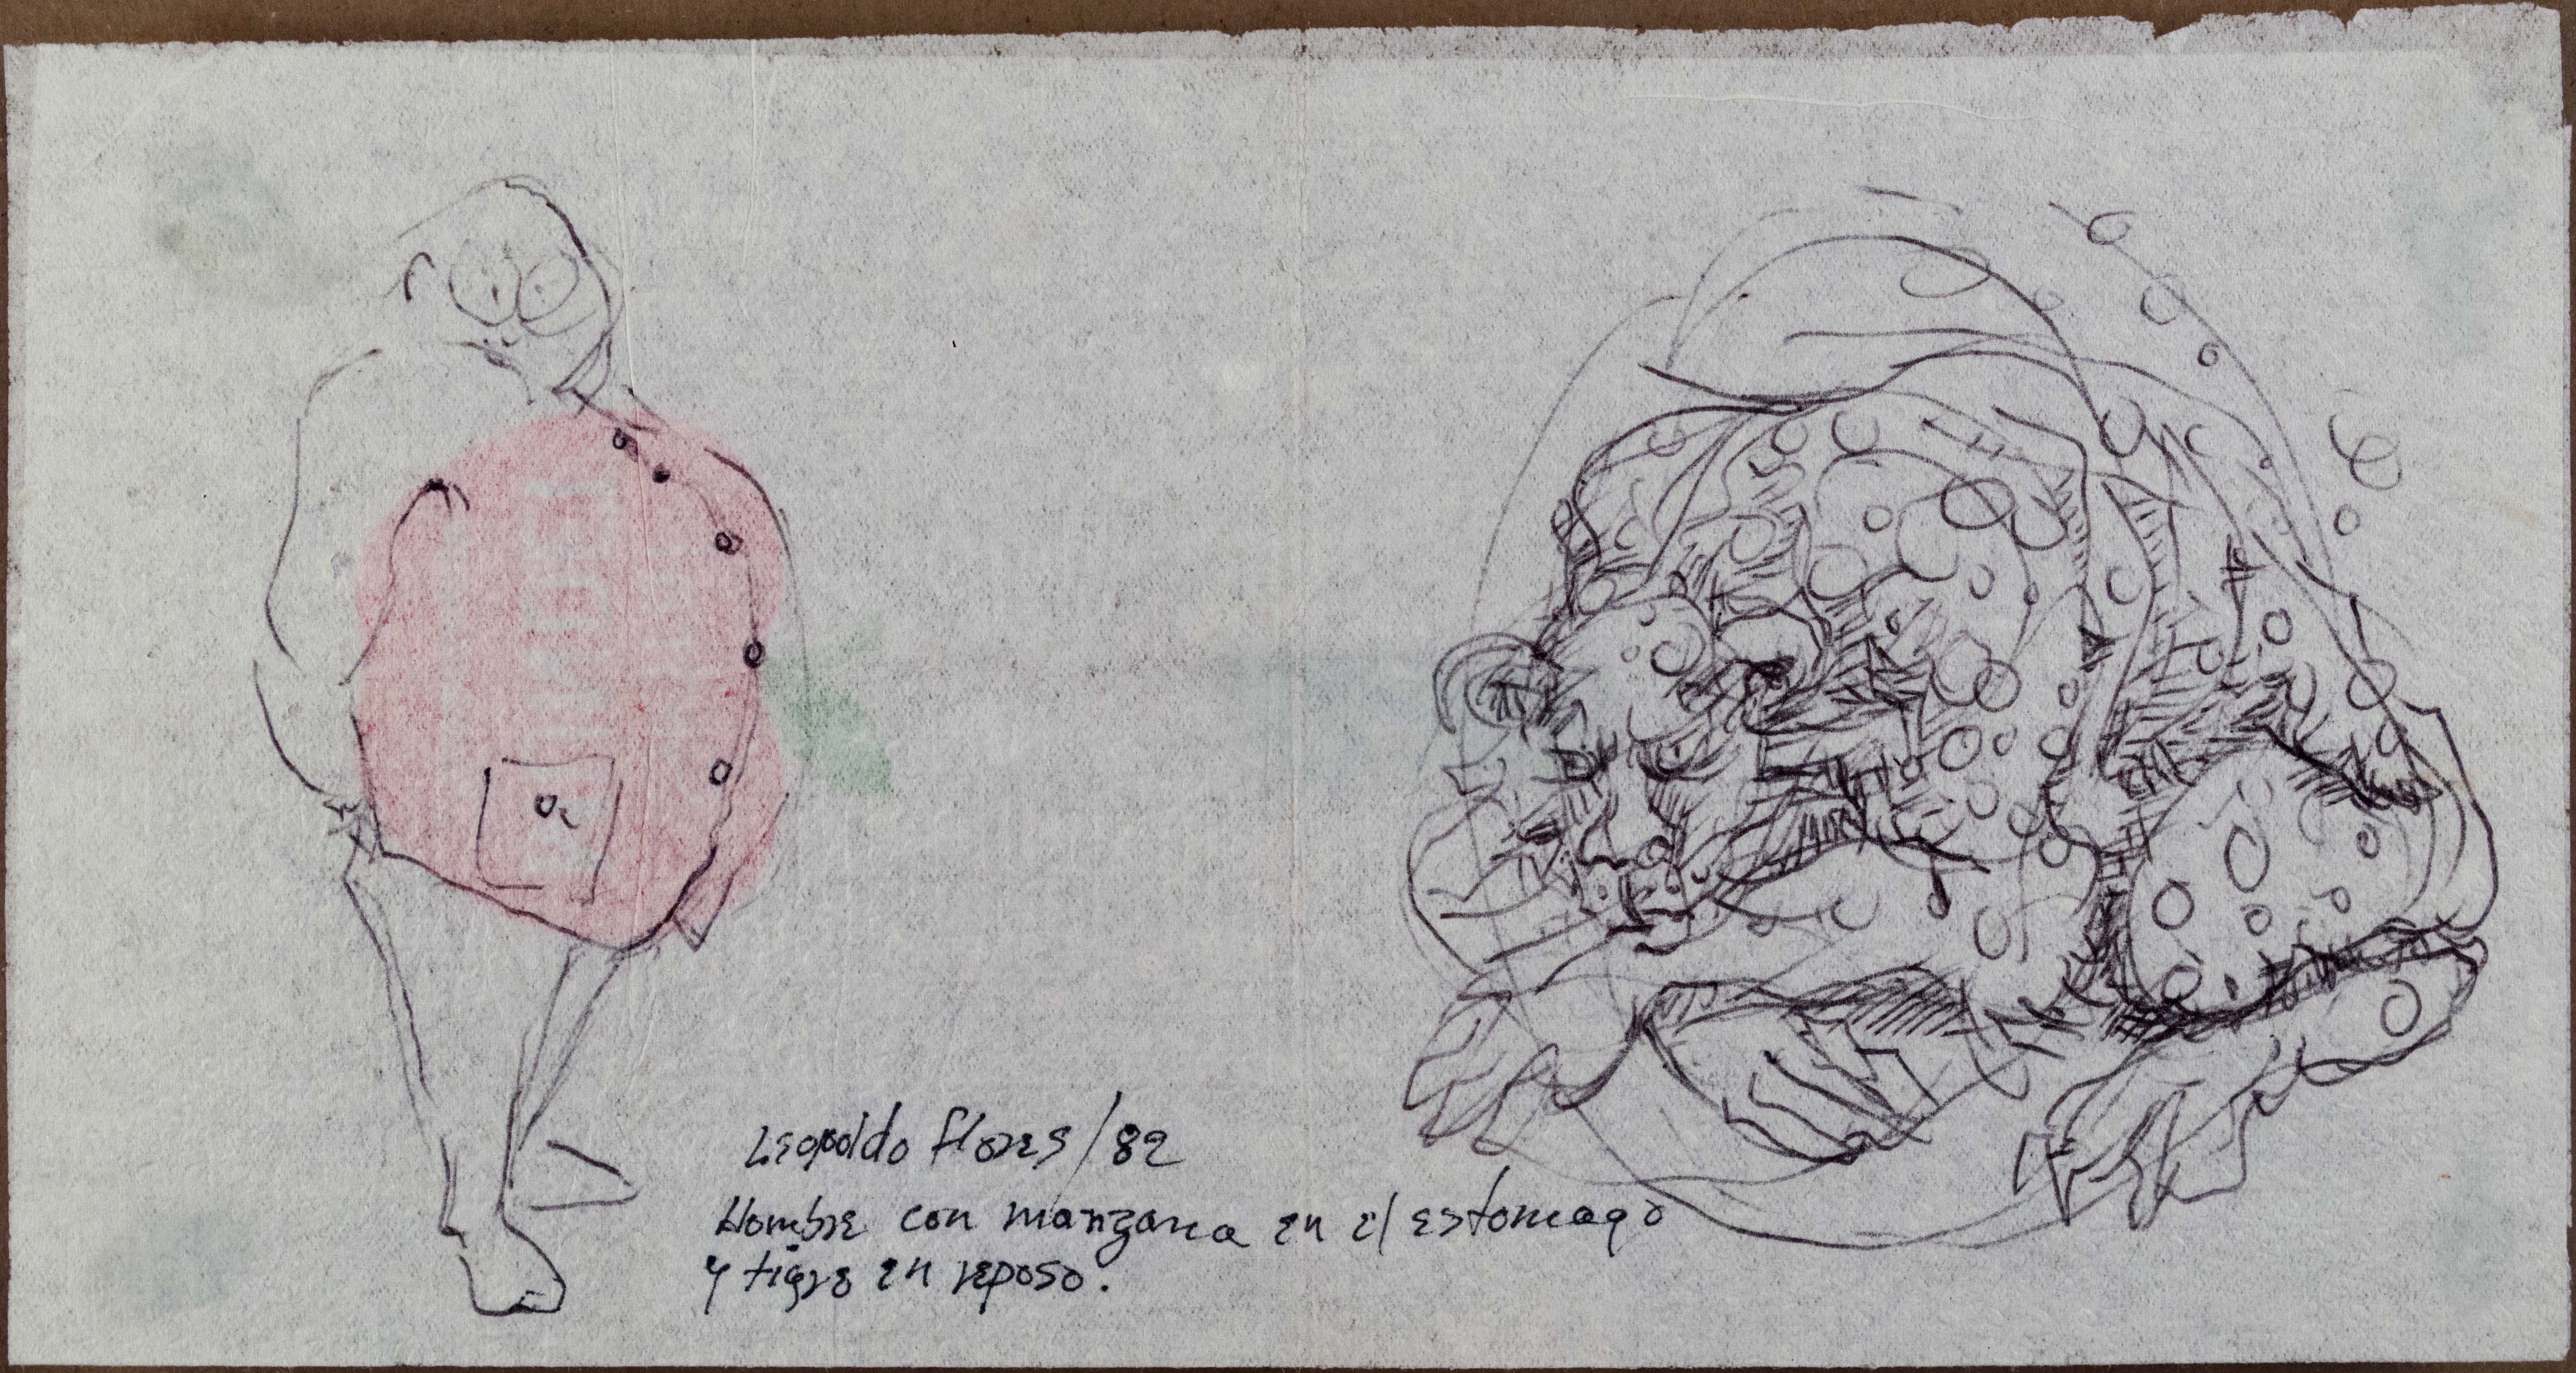 Leopoldo flores/82
Hombre con manzana en el estomago
y tigre en reposo.